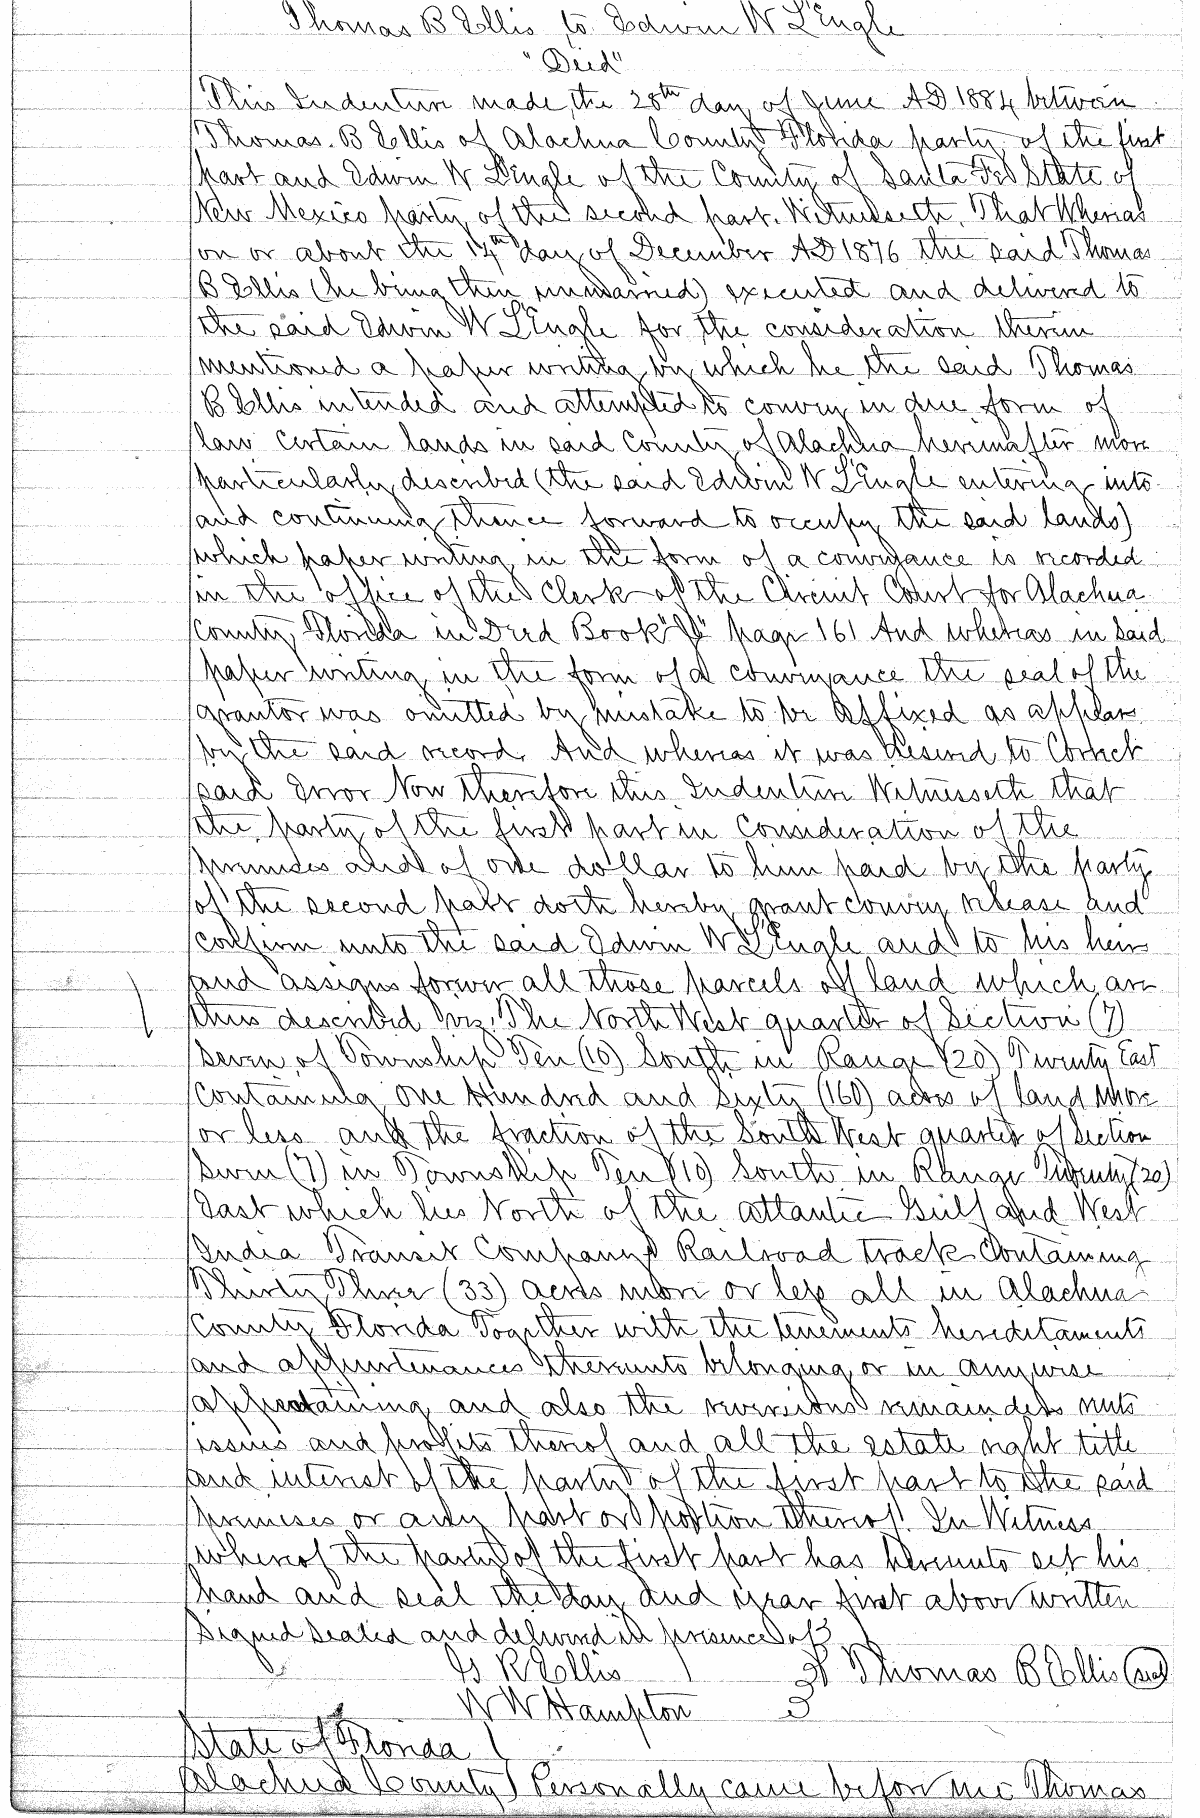 Thomas B Ellis to Edwin W L'Engle
"Deed"
This Indenture made the 28th day of June AD 1884 between
Thomas. B Ellis of Alachua County Florida party of the first
part and Edwin W L'Engle of the County of Santa Fe State of
New Mexico party of the second part. Witnesseth. That Whereas
on or about the 14th day of December AD 1876 the said Thomas
B Ellis (he being then unmarried) executed and delivered to
the said Edwin W L'Engle for the consideration therein
mentioned a paper writing by which he the said Thomas
B Ellis intended and attempted to convey in due form of
law certain lands in said County of Alachua hereinafter more
particularly described (the said Edwin W L'Engle entering into
and continuing thence forward to occupy the said lands)
which paper writing in the form of a conveyance is recorded
in the office of the Clerk of the Circuit Court for Alachua
County Florida in Deed Book page 161 And whereas in said
paper writing in the form of a conveyance the seal of the
grantor was omitted by mistake to be affixed as appears
by the said record. And whereas it was desired to Correct
said Error Now therefore this Indenture Witnesseth that
the party of the first part in Consideration of the
premises and of one dollar to him paid by the party
of the second part doth hereby grant convey release and
confirm unto the said Edwin W L'Engle and to his heirs
and assigns forever all those parcels of land which are
thus described viz. The North West quarter of Section (7)
Seven of Township Ten (10) South in Range (20) Twenty East
Containing One Hundred and Sixty (160) acres of land more
or less and the fraction of the South West quarter of Section
Seven (7) in Township Ten (10) South in Range Twenty (20)
East which lies North of the Atlantic Gulf and West
India Transit Company's Railroad track Containing
Thirty Three (33) acres more or less all in Alachua
County Florida Together with the tenements hereditaments
and appurtenances thereunto belonging or in anywise
appertaining and also the reversions remainders rents
issues and profits thereof and all the estate right title
and interest of the party of the first part to the said
premises or any part or portion thereof. In Witness
whereof the party of the first part has hereunto set his
hand and seal the day and year first above written
Signed sealed and delivered in presence of
R Ellis Thomas B Ellis (seal)
W W Hampton
State of Florida
Alachua County) Personally came before me Thomas